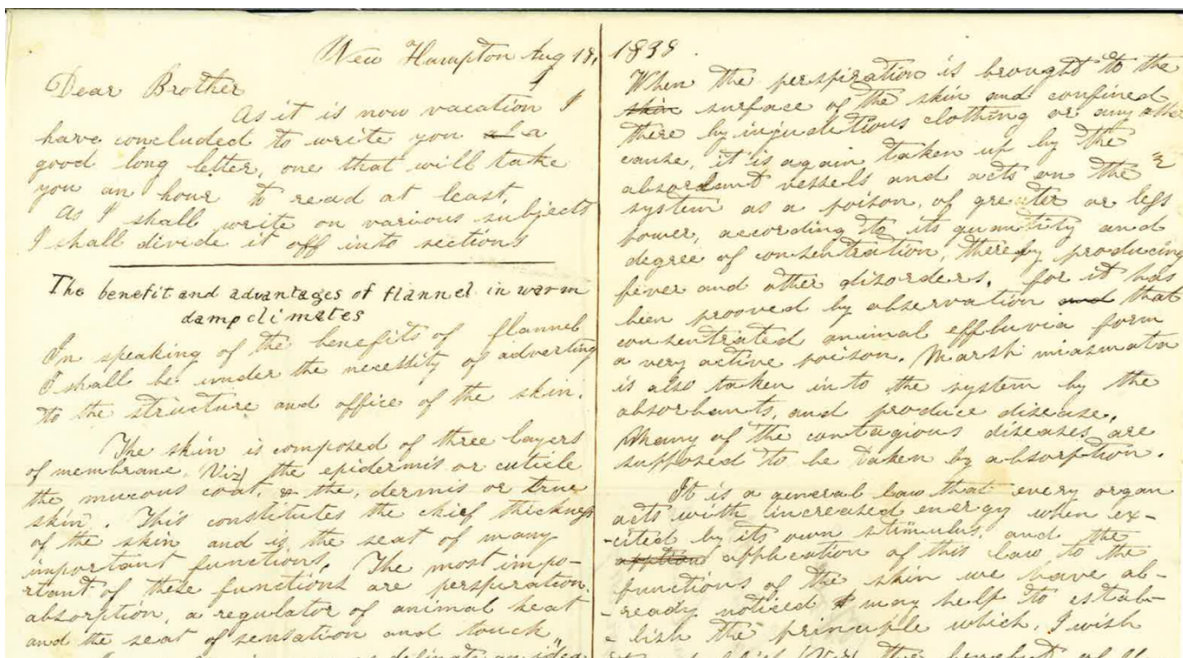 New Hampton Aug 18, 1838.
Dear Brother
As it is now vacation I
have concluded to write you a
good long letter, one that will take
you an hour to read at least.
As I shall write on various subjects
I shall divide it off into sections
The benefit and advantages of flannel in warm
damp climates
In speaking of the benefits of flannel
I shall be under the necessity of adverting
to the structure and office of the skin.
The skin is composed of three layers
of membrane. Viz the epidermis or cuticle
the mucous coat, & the, dermis or true
skin. This constitutes the chief thickness
of the skin and is the seat of many
important functions. The most impo-
rtant of these functions are perspiration
absorption, a regulator of animal heat
and the seat of sensation and touch,,
When the perspiration is brought to the
skin surface of the skin and confined
there by injuditious clothing or any othe
cause, it is again taken up by the
absorbant vessels and acts on the
system as a poison, of greater or less
power, according to its quantity and
degree of consentration, thereby producing
fever and other disorders, for it has
been prooved by observation and that
consentrated animal effluvia form
a very active poison. Marsh miasmata
is also taken in to the system by the
absorbants, and produce disease.
Many of the contagious diseases are
supposed to be taken by absorption.
It is a general law that every organ
acts with increased energy when ex-
-cited by its own stimulus, and the
application of this law to the
functions of the skin we have al-
-ready noticed & may help to estab-
-lish the principle which, I wish